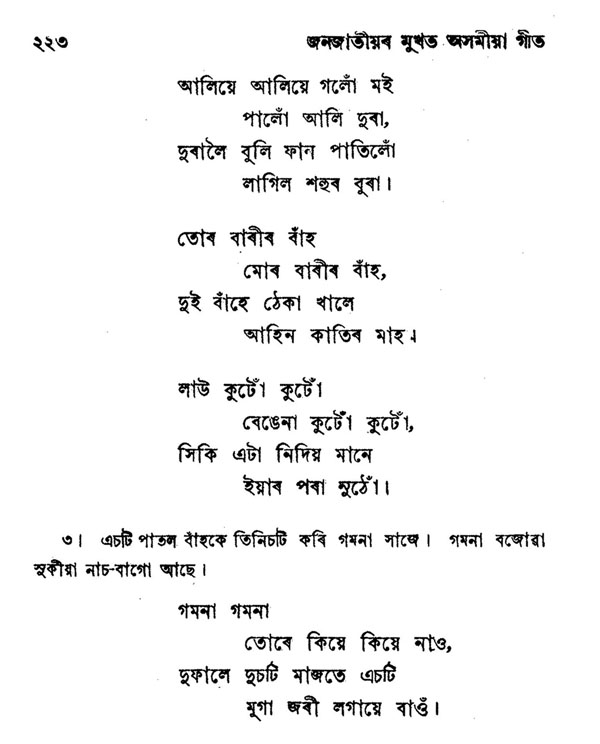 ২২৩ জনজাতীয়ৰ মুখত অসমীয়া গীত
আলিয়ে আলিয়ে গলোঁ মই
পালোঁ আলি দুৰা,
দুৰালৈ বুলি ফান পাতিলোঁ
লাগিল শহুৰ বুৰা।
তোৰ বাৰীৰ বাঁহ
মোৰ বাৰীৰ বাঁহ,
দুই বাঁহে ঠেকা খালে
আহিন কাতিৰ মাহ।
লাউ কুটোঁ কুটোঁ
বেঙেনা কুটোঁ কুটোঁ,
সিকি এটা নিদিয় মানে
ইয়াৰ পৰা নুঠোঁ।
৩। এচটি পাতল বাঁহকে তিনিচটি কৰি গমনা সাজে। গমনা বজোৱা
সুকীয়া নাচ-বাগো আছে।
গমনা গমনা
তোৰে কিয়ে কিয়ে নাও,
দুফালে দুচটি মাজতে এচটি
মুগা জৰী লগায়ে বাওঁ।